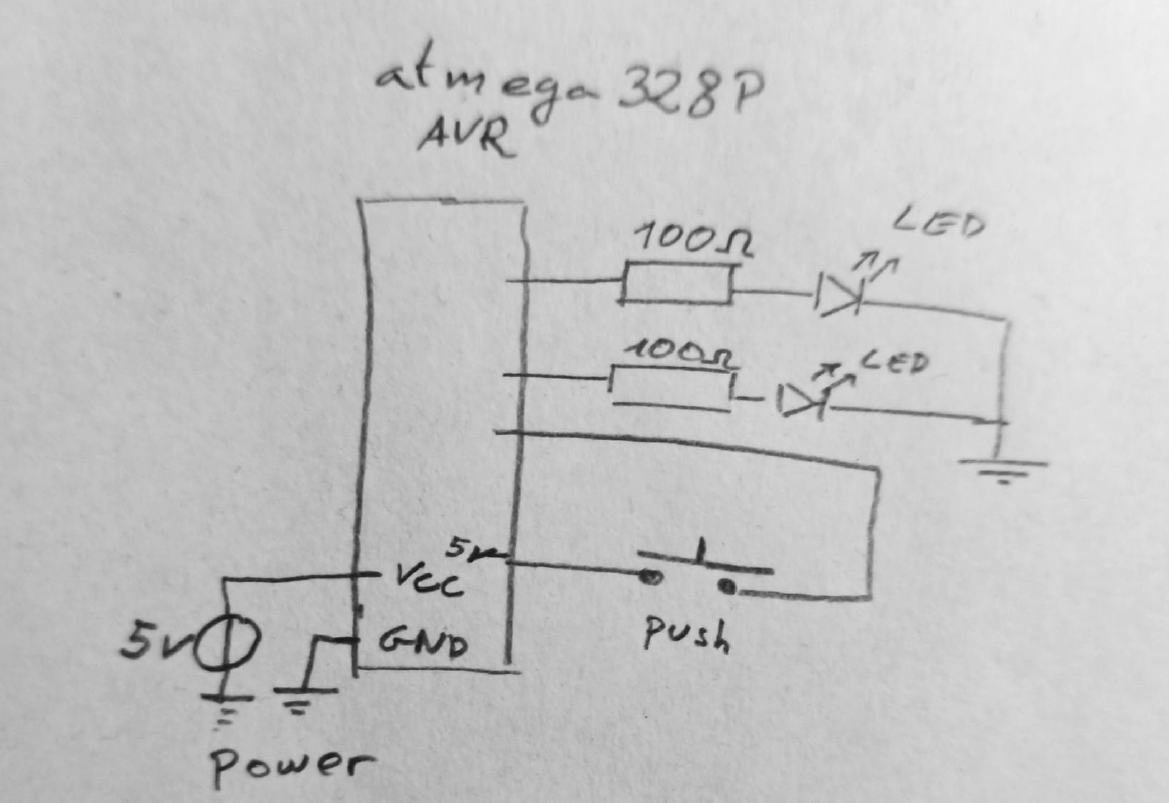 atmega 328P
AVR
100Ω
LED
100Ω
LED
5v
VCC
5v
GND
push
power